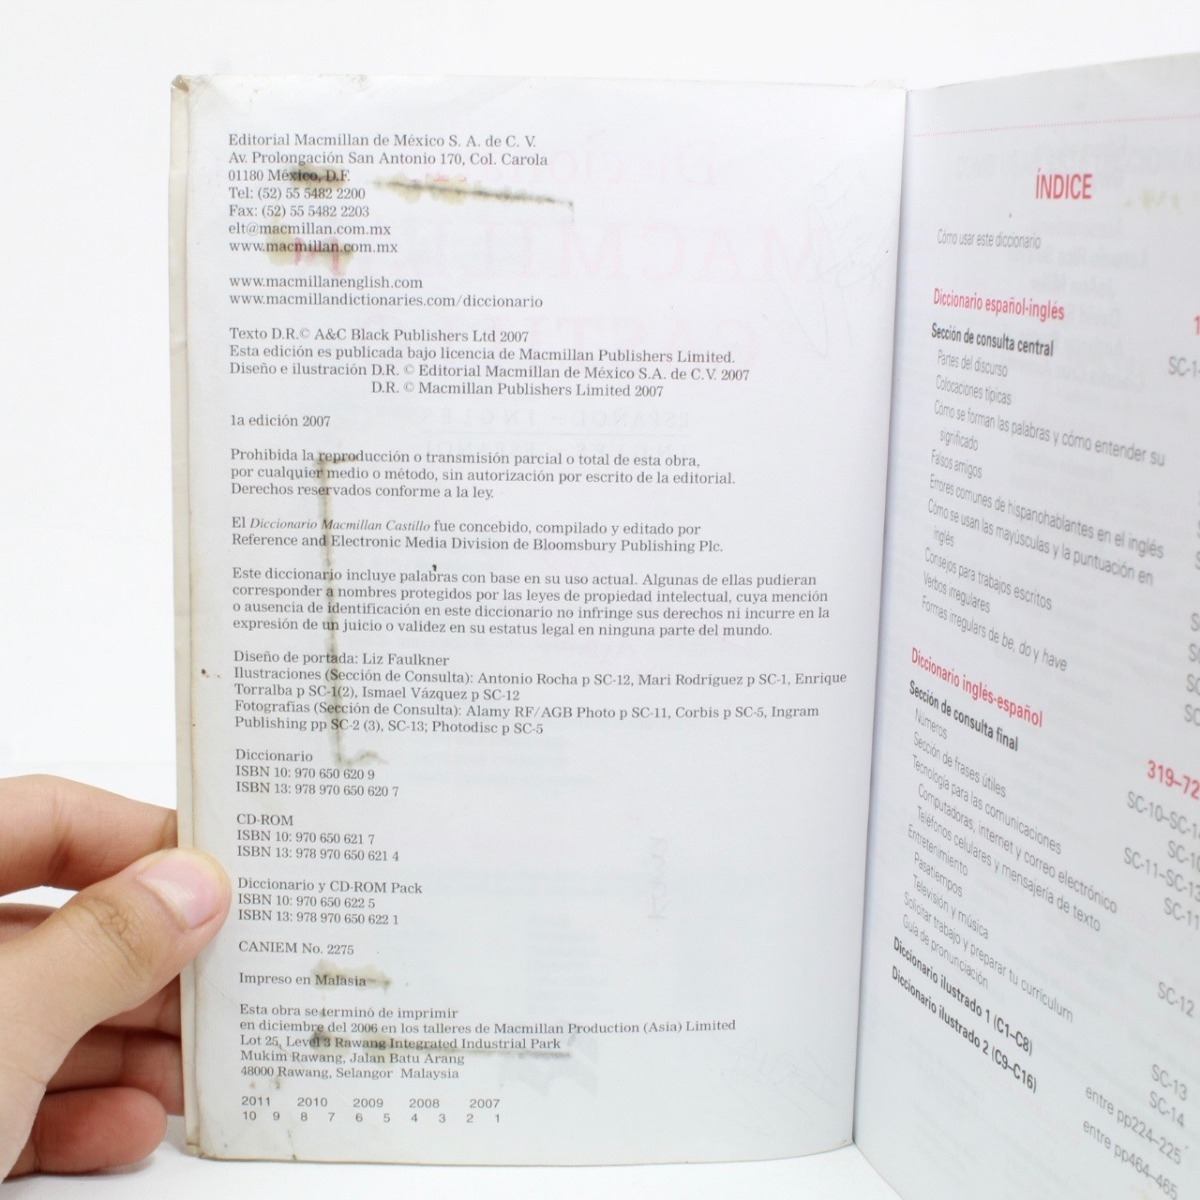 Editorial Macmillan de México S. A. de C. V.
Av. Prolongación San Antonio 170, Col. Carola
01180 México, D.F.
Tel: (52) 55 5482 2200
Fax: (52) 55 5482 2203
elt@macmillan.com.mx
www.macmillan.com.mx
www.macmillanenglish.com
www.macmillandictionaries.com/diccionario
Texto D.R.© A&C Black Publishers Ltd 2007
Esta edición es publicada bajo licencia de Macmillan Publishers Limited.
Diseño e ilustración D.R. © Editorial Macmillan de México S.A. de C.V. 2007
D.R. © Macmillan Publishers Limited 2007
1a edición 2007
Prohibida la reproducción o transmisión parcial o total de esta obra,
por cualquier medio o método, sin autorización por escrito de la editorial.
Derechos reservados conforme a la ley.
El Diccionario Macmillan Castillo fue concebido, compilado y editado por
Reference and Electronic Media Division de Bloomsbury Publishing Plc.
Este diccionario incluye palabras con base en su uso actual. Algunas de ellas pudieran
corresponder a nombres protegidos por las leyes de propiedad intelectual, cuya mención
o ausencia de identificación en este diccionario no infringe sus derechos ni incurre en la
expresión de un juicio o validez en su estatus legal en ninguna parte del mundo.
Diseño de portada: Liz Faulkner
Ilustraciones (Sección de Consulta): Antonio Rocha p SC-12, Mari Rodríguez p SC-1, Enrique
Torralba p SC-1(2), Ismael Vázquez p SC-12
Fotografías (Sección de Consulta): Alamy RF/AGB Photo p SC-11, Corbis p SC-5, Ingram
Publishing pp SC-2 (3), SC-13; Photodisc p SC-5
Diccionario
ISBN 10: 970 650 620 9
ISBN 13: 978 970 650 620 7
CD-ROM
ISBN 10: 970 650 621 7
ISBN 13: 978 970 650 621 4
Diccionario y CD-ROM Pack
ISBN 10: 970 650 622 5
ISBN 13: 978 970 650 622 1
CANIEM No. 2275
Impreso en Malasia
Esta obra se terminó de imprimir
en diciembre del 2006 en los talleres de Macmillan Production (Asia) Limited
Lot 25, Level 3 Rawang Integrated Industrial Park
Mukim Rawang, Jalan Batu Arang
48000 Rawang, Selangor Malaysia
2011 2010 2009 2008 2007
10 9 8 7 6 5 4 3 2 1
ÍNDICE
Cómo usar este diccionario
Diccionario español-inglés
Sección de consulta central
SC-1
Partes del discurso
Colocaciones típicas
Cómo se forman las palabras y cómo entender su
significado
Falsos amigos
Errores comunes de hispanohablantes en el inglés
Cómo se usan las mayúsculas y la puntuación en
inglés
Consejos para trabajos escritos
Verbos irregulares
Formas irregulars de be, do y have
Diccionario inglés-español 319–72
Sección de consulta final SC-10–SC-1
Números SC-10
Sección de frases útiles SC-11–SC-1
Tecnología para las comunicaciones SC-11
Computadoras, internet y correo electrónico
Teléfonos celulares y mensajería de texto
Entretenimiento SC-12
Pasatiempos
Televisión y música
Solicitar trabajo y preparar tu curriculum SC-13
Guía de pronunciación SC-14
Diccionario ilustrado 1 (C1–C8) entre pp224–225
Diccionario ilustrado 2 (C9–C16) entre pp464–465